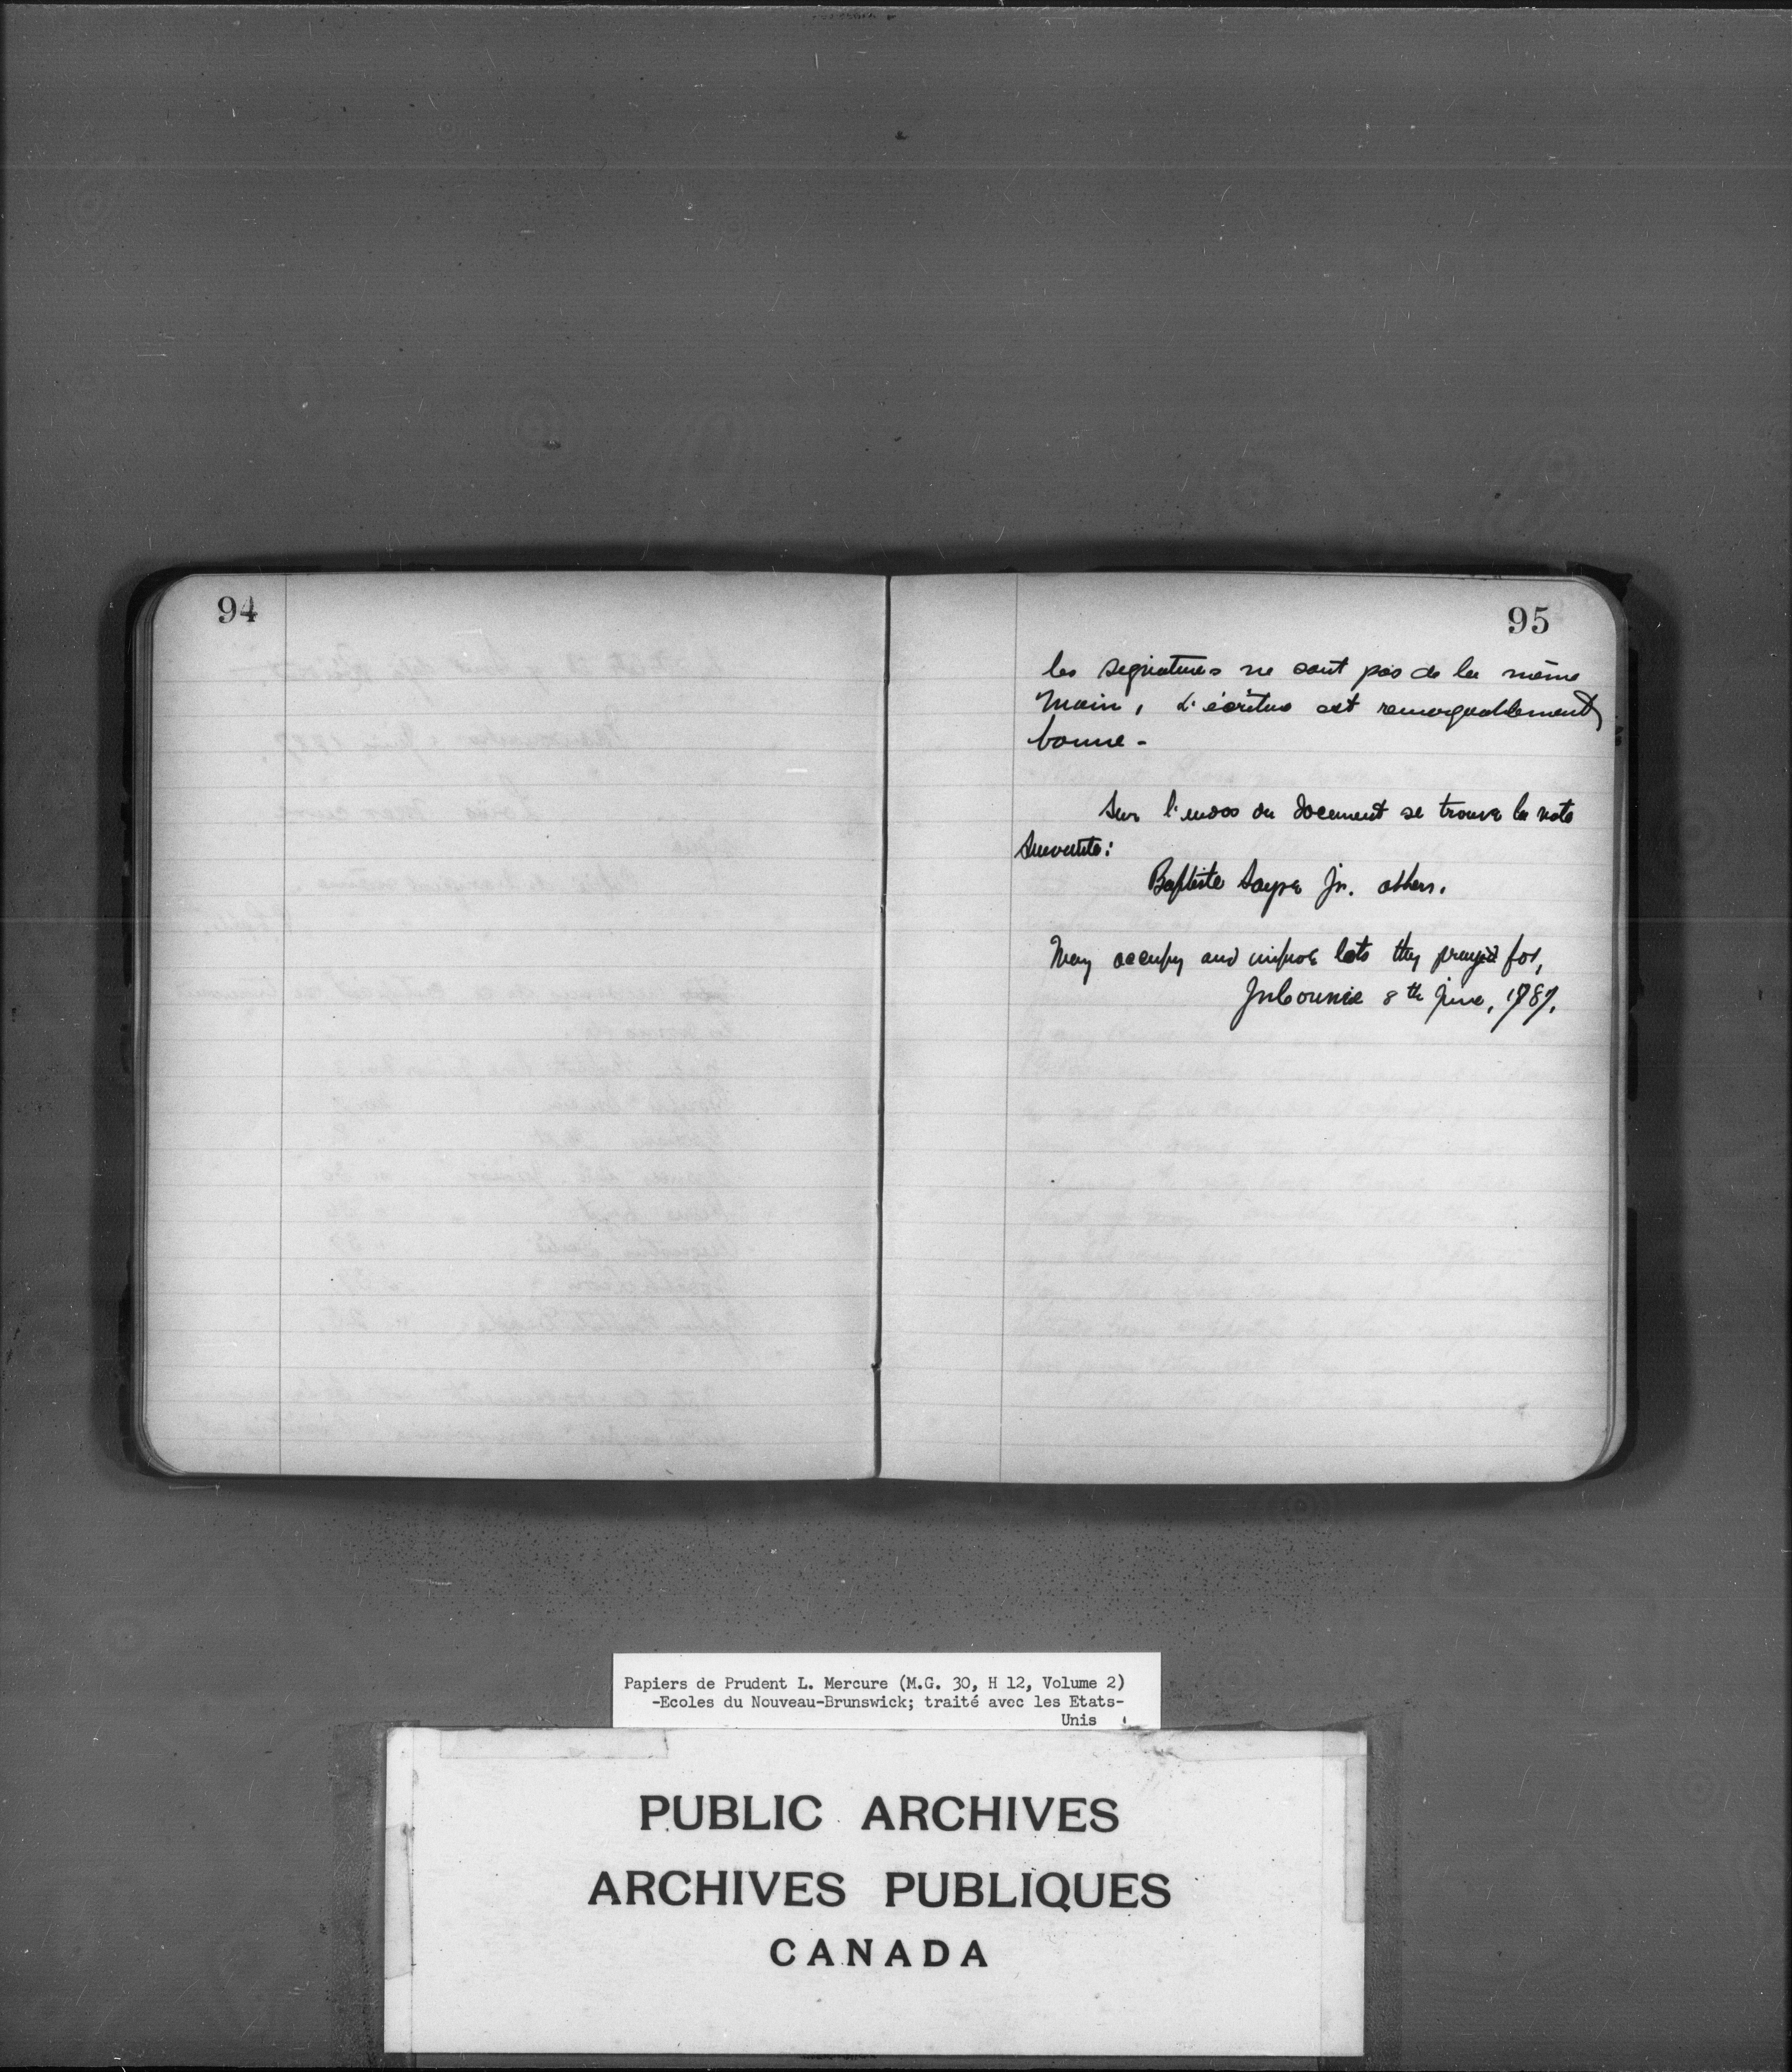 94
95
les signatures ne sont pas de la même
main, L'écriture est remarquablement
bonne -
Sur l'endos du document se trouve la note
suivante:
Baptiste Sayre Jr. others.
May occupy and improve lots they prayed for,
In Council 8th June, 1787.
Papiers de Prudent L. Mercure (M.G. 30, H 12, Volume 2)
-Ecoles du Nouveau-Brunswick; traité avec les Etats-
Unis
PUBLIC ARCHIVES
ARCHIVES PUBLIQUES
CANADA